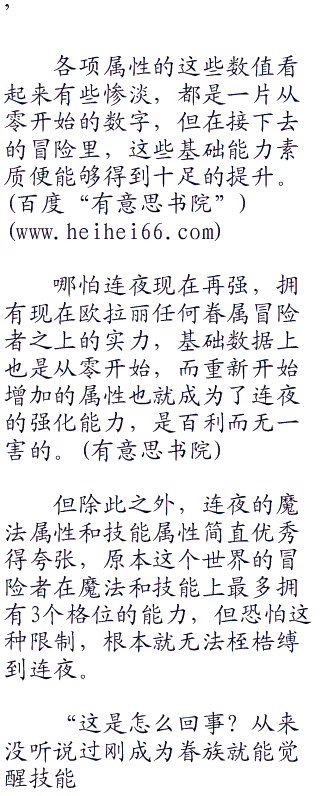 ，
各项属性的这些数值看
起来有些惨淡，都是一片从
零开始的数字，但在接下去
的冒险里，这些基础能力素
质便能够得到十足的提升。
(百度“有意思书院”)
(www.heihei66.com)
哪怕连夜现在再强，拥
有现在欧拉丽任何眷属冒险
者之上的实力，基础数据上
也是从零开始，而重新开始
增加的属性也就成为了连夜
的强化能力，是百利而无一
害的。(有意思书院)
但除此之外，连夜的魔
法属性和技能属性简直优秀
得夸张，原本这个世界的冒
险者在魔法和技能上最多拥
有3个格位的能力，但恐怕这
种限制，根本就无法桎梏缚
到连夜。
“这是怎么回事？从来
没听说过刚成为眷族就能觉
醒技能